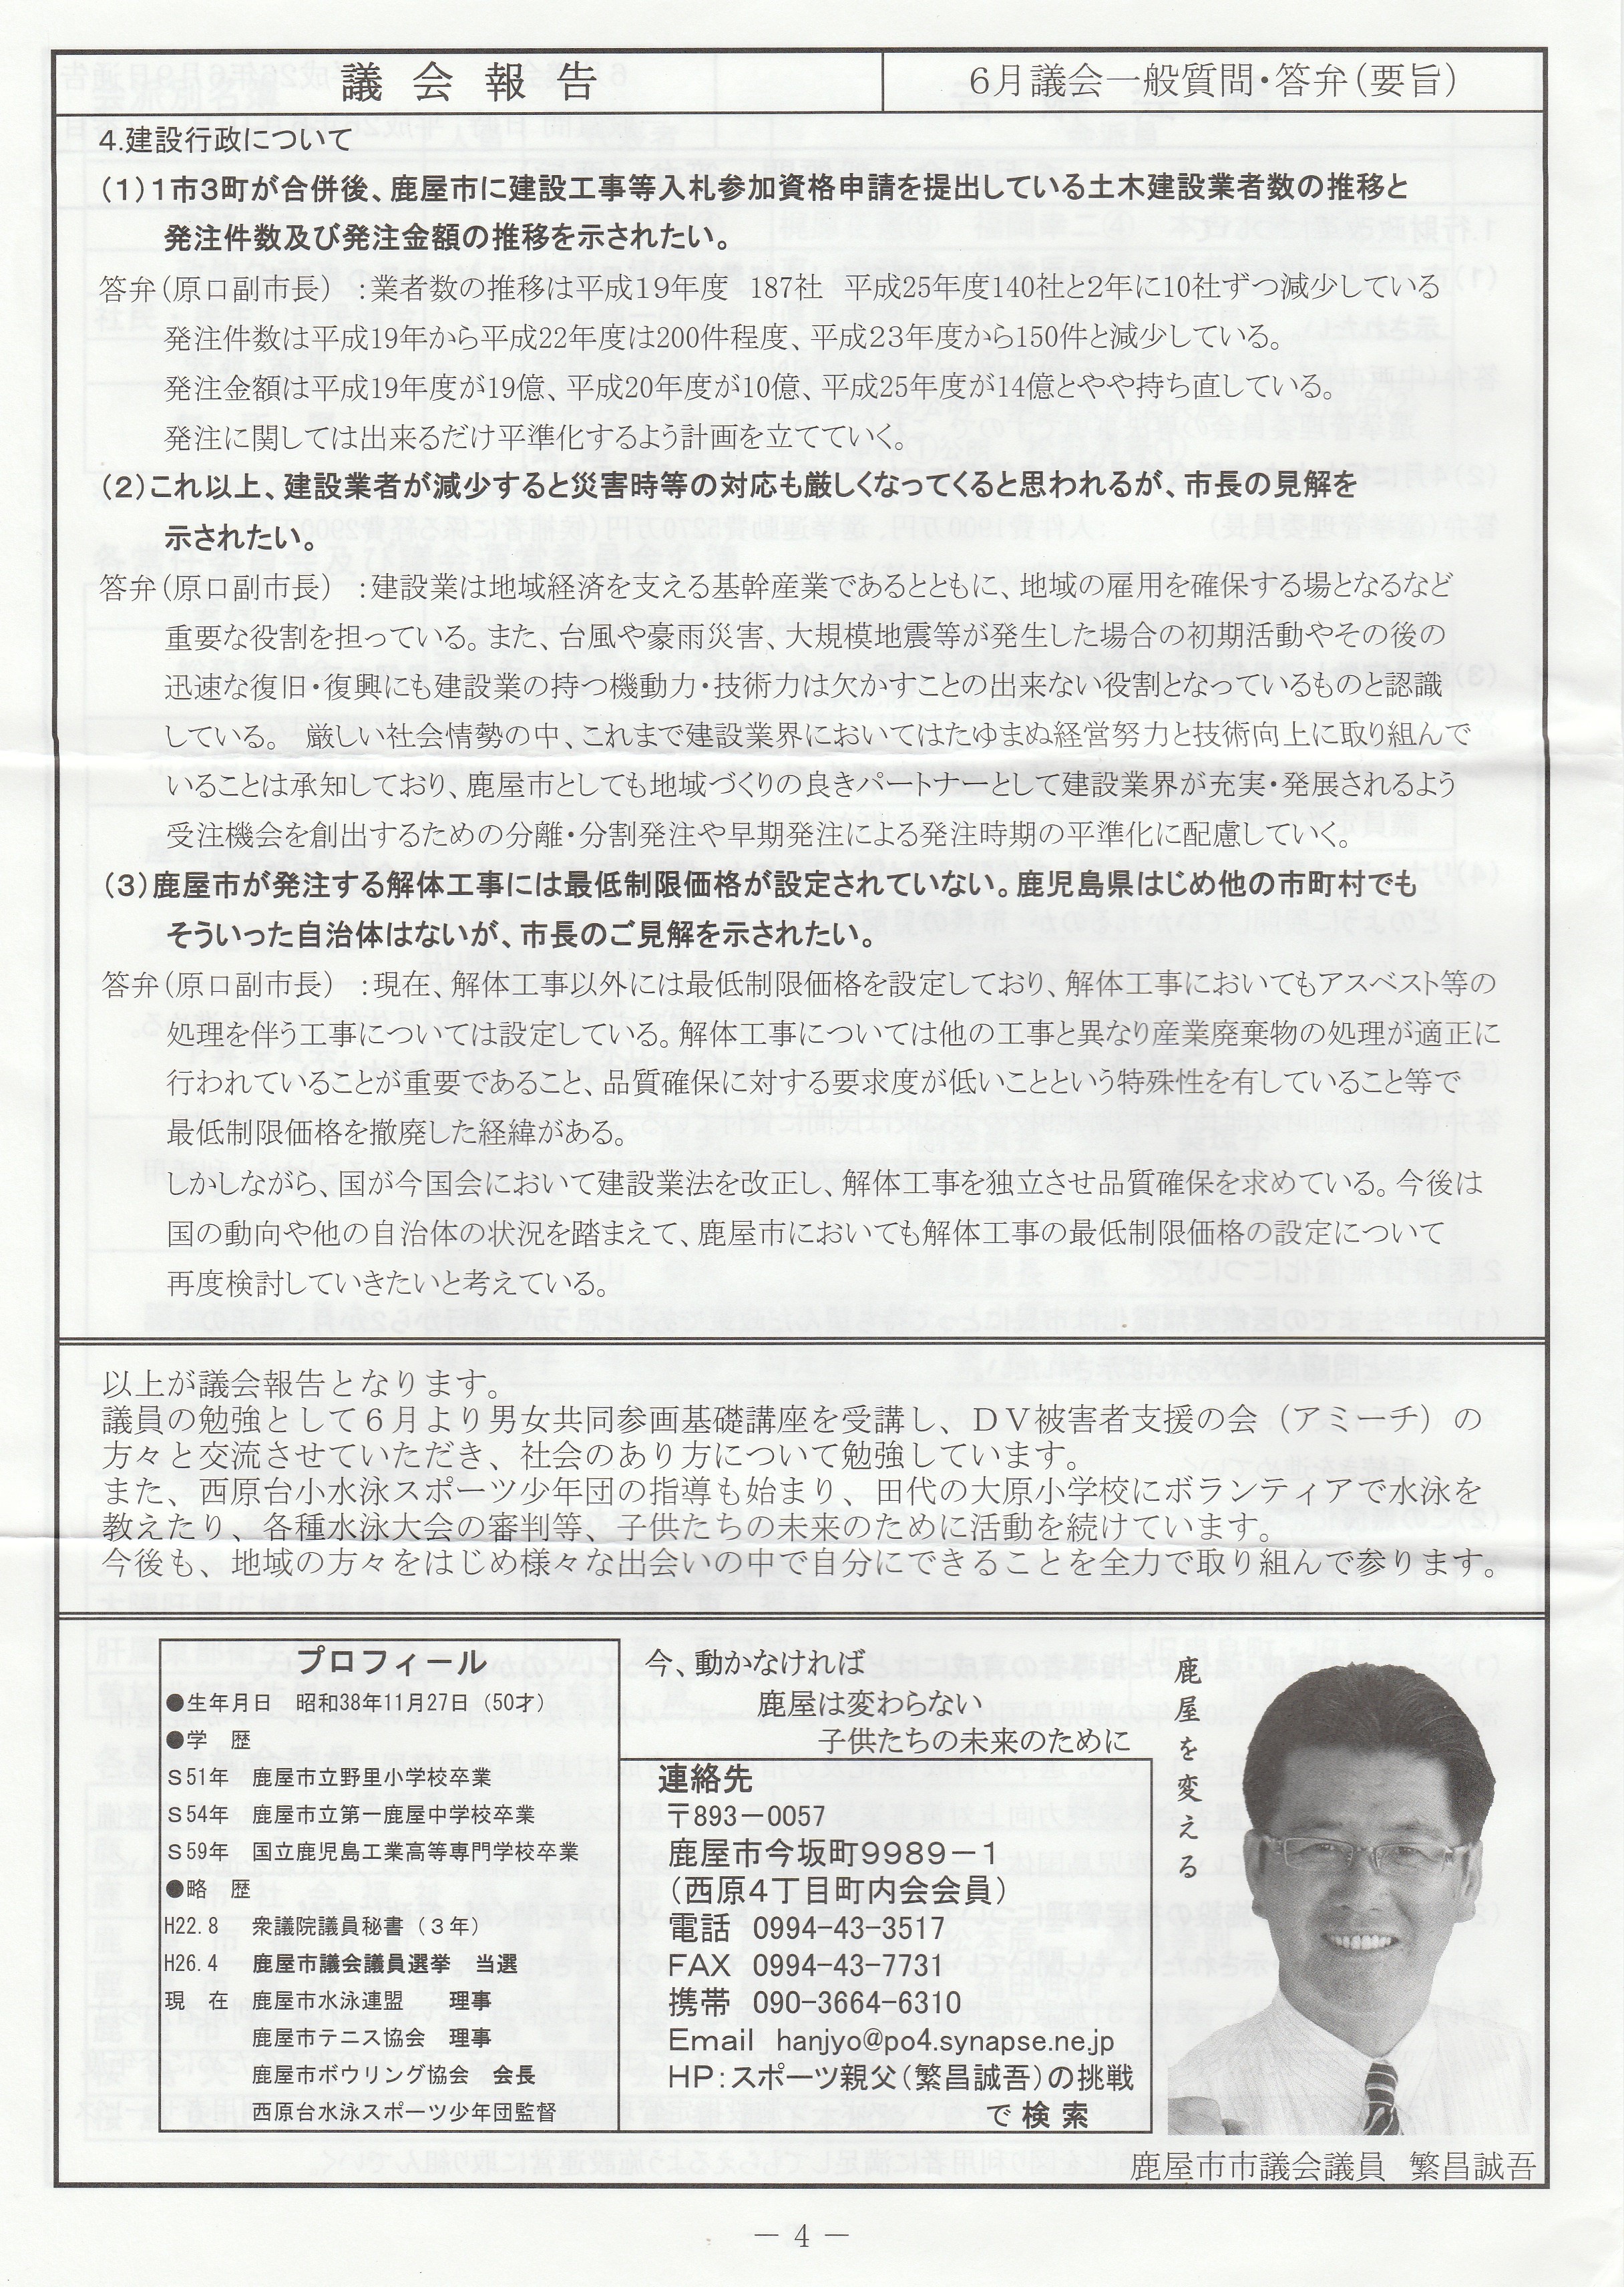 議会報告
6月議会一般質問・答弁（要旨）
4.建設行政について
（1）1市3町が合併後、鹿屋市に建設工事等入札参加資格申請を提出している土木建設業者数の推移と
発注件数及び発注金額の推移を示されたい。
答弁（原口副市長）：業者数の推移は平成19年度 187社 平成25年度140社と2年に10社ずつ減少している
発注件数は平成19年から平成22年度は200件程度、平成23年度から150件と減少している。
発注金額は平成19年度が19億、平成20年度が10億、平成25年度が14億とやや持ち直している。
発注に関しては出来るだけ平準化するよう計画を立てていく。
（2）これ以上、建設業者が減少すると災害時等の対応も厳しくなってくると思われるが、市長の見解を
示されたい。
答弁（原口副市長）：建設業は地域経済を支える基幹産業であるとともに、地域の雇用を確保する場となるなど
重要な役割を担っている。また、台風や豪雨災害、大規模地震等が発生した場合の初期活動やその後の
迅速な復旧・復興にも建設業の持つ機動力・技術力は欠かすことの出来ない役割となっているものと認識
している。 厳しい社会情勢の中、これまで建設業界においてはたゆまぬ経営努力と技術向上に取り組んで
いることは承知しており、鹿屋市としても地域づくりの良きパートナーとして建設業界が充実・発展されるよう
受注機会を創出するための分離・分割発注や早期発注による発注時期の平準化に配慮していく。
（3）鹿屋市が発注する解体工事には最低制限価格が設定されていない。鹿児島県はじめ他の市町村でも
そういった自治体はないが、市長のご見解を示されたい。
答弁（原口副市長）：現在、解体工事以外には最低制限価格を設定しており、解体工事においてもアスベスト等の
処理を伴う工事については設定している。解体工事については他の工事と異なり産業廃棄物の処理が適正に
行われていることが重要であること、品質確保に対する要求度が低いことという特殊性を有していること等で
最低制限価格を撤廃した経緯がある。
しかしながら、国が今国会において建設業法を改正し、解体工事を独立させ品質確保を求めている。今後は
国の動向や他の自治体の状況を踏まえて、鹿屋市においても解体工事の最低制限価格の設定について
再度検討していきたいと考えている。
以上が議会報告となります。
議員の勉強として６月より男女共同参画基礎講座を受講し、ＤＶ被害者支援の会（アミーチ）の
方々と交流させていただき、社会のあり方について勉強しています。
また、西原台小水泳スポーツ少年団の指導も始まり、田代の大原小学校にボランティアで水泳を
教えたり、各種水泳大会の審判等、子供たちの未来のために活動を続けています。
今後も、地域の方々をはじめ様々な出会いの中で自分にできることを全力で取り組んで参ります。
プロフィール
●生年月日 昭和38年11月27日（50才）
●学 歴
Ｓ51年 鹿屋市立野里小学校卒業
Ｓ54年 鹿屋市立第一鹿屋中学校卒業
Ｓ59年 国立鹿児島工業高等専門学校卒業
●略 歴
H22.8 衆議院議員秘書（３年）
H26.4 鹿屋市議会議員選挙 当選
現 在 鹿屋市水泳連盟 理事
鹿屋市テニス協会 理事
鹿屋市ボウリング協会 会長
西原台水泳スポーツ少年団監督
今、動かなければ
鹿屋は変わらない
子供たちの未来のために
連絡先
〒893－0057
鹿屋市今坂町９９８９－１
（西原４丁目町内会会員）
電話 0994-43-3517
FAX 0994-43-7731
携帯 090-3664-6310
Email hanjyo@po4.synapse.ne.jp
HP：スポーツ親父（繁昌誠吾）の挑戦
で 検 索
鹿屋を変える
鹿屋市市議会議員 繁昌誠吾
－ 4 －